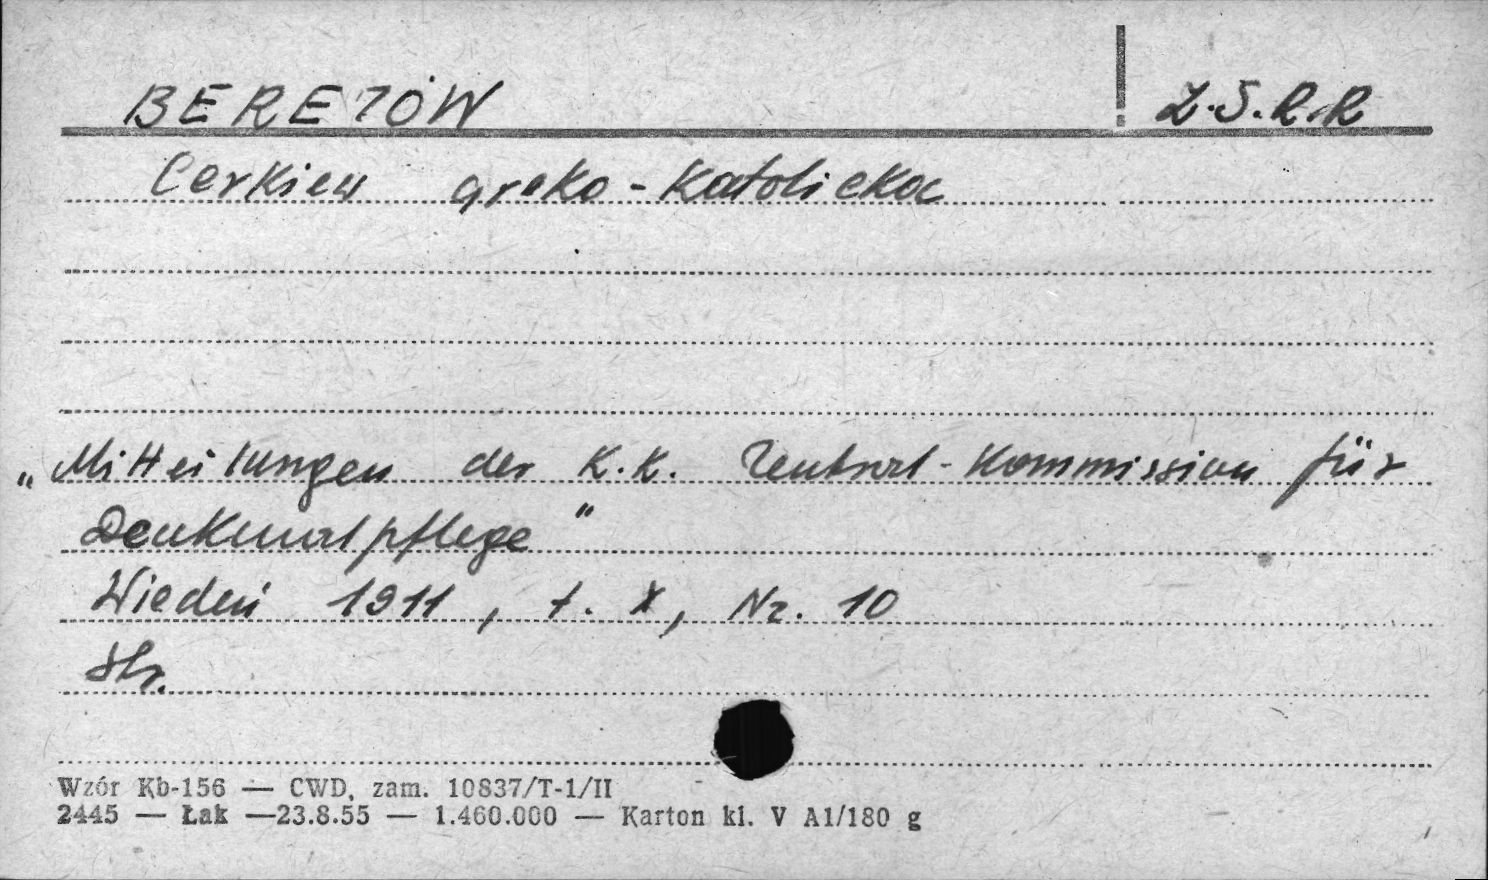 BEREZÓW Z.S.R.R
Cerkiew greko-Katolicka
„Mitteilungen der K.K. Zentral-Kommission für
Denkmalpflege"
Wiedeń 1911, t. X, Nr. 10
Str.
Wzór Kb-156 — CWD, zam. 10837/T-1/II
2445 — Łak —23.8.55 — 1.460.000 — Karton kl. V A1/180 g